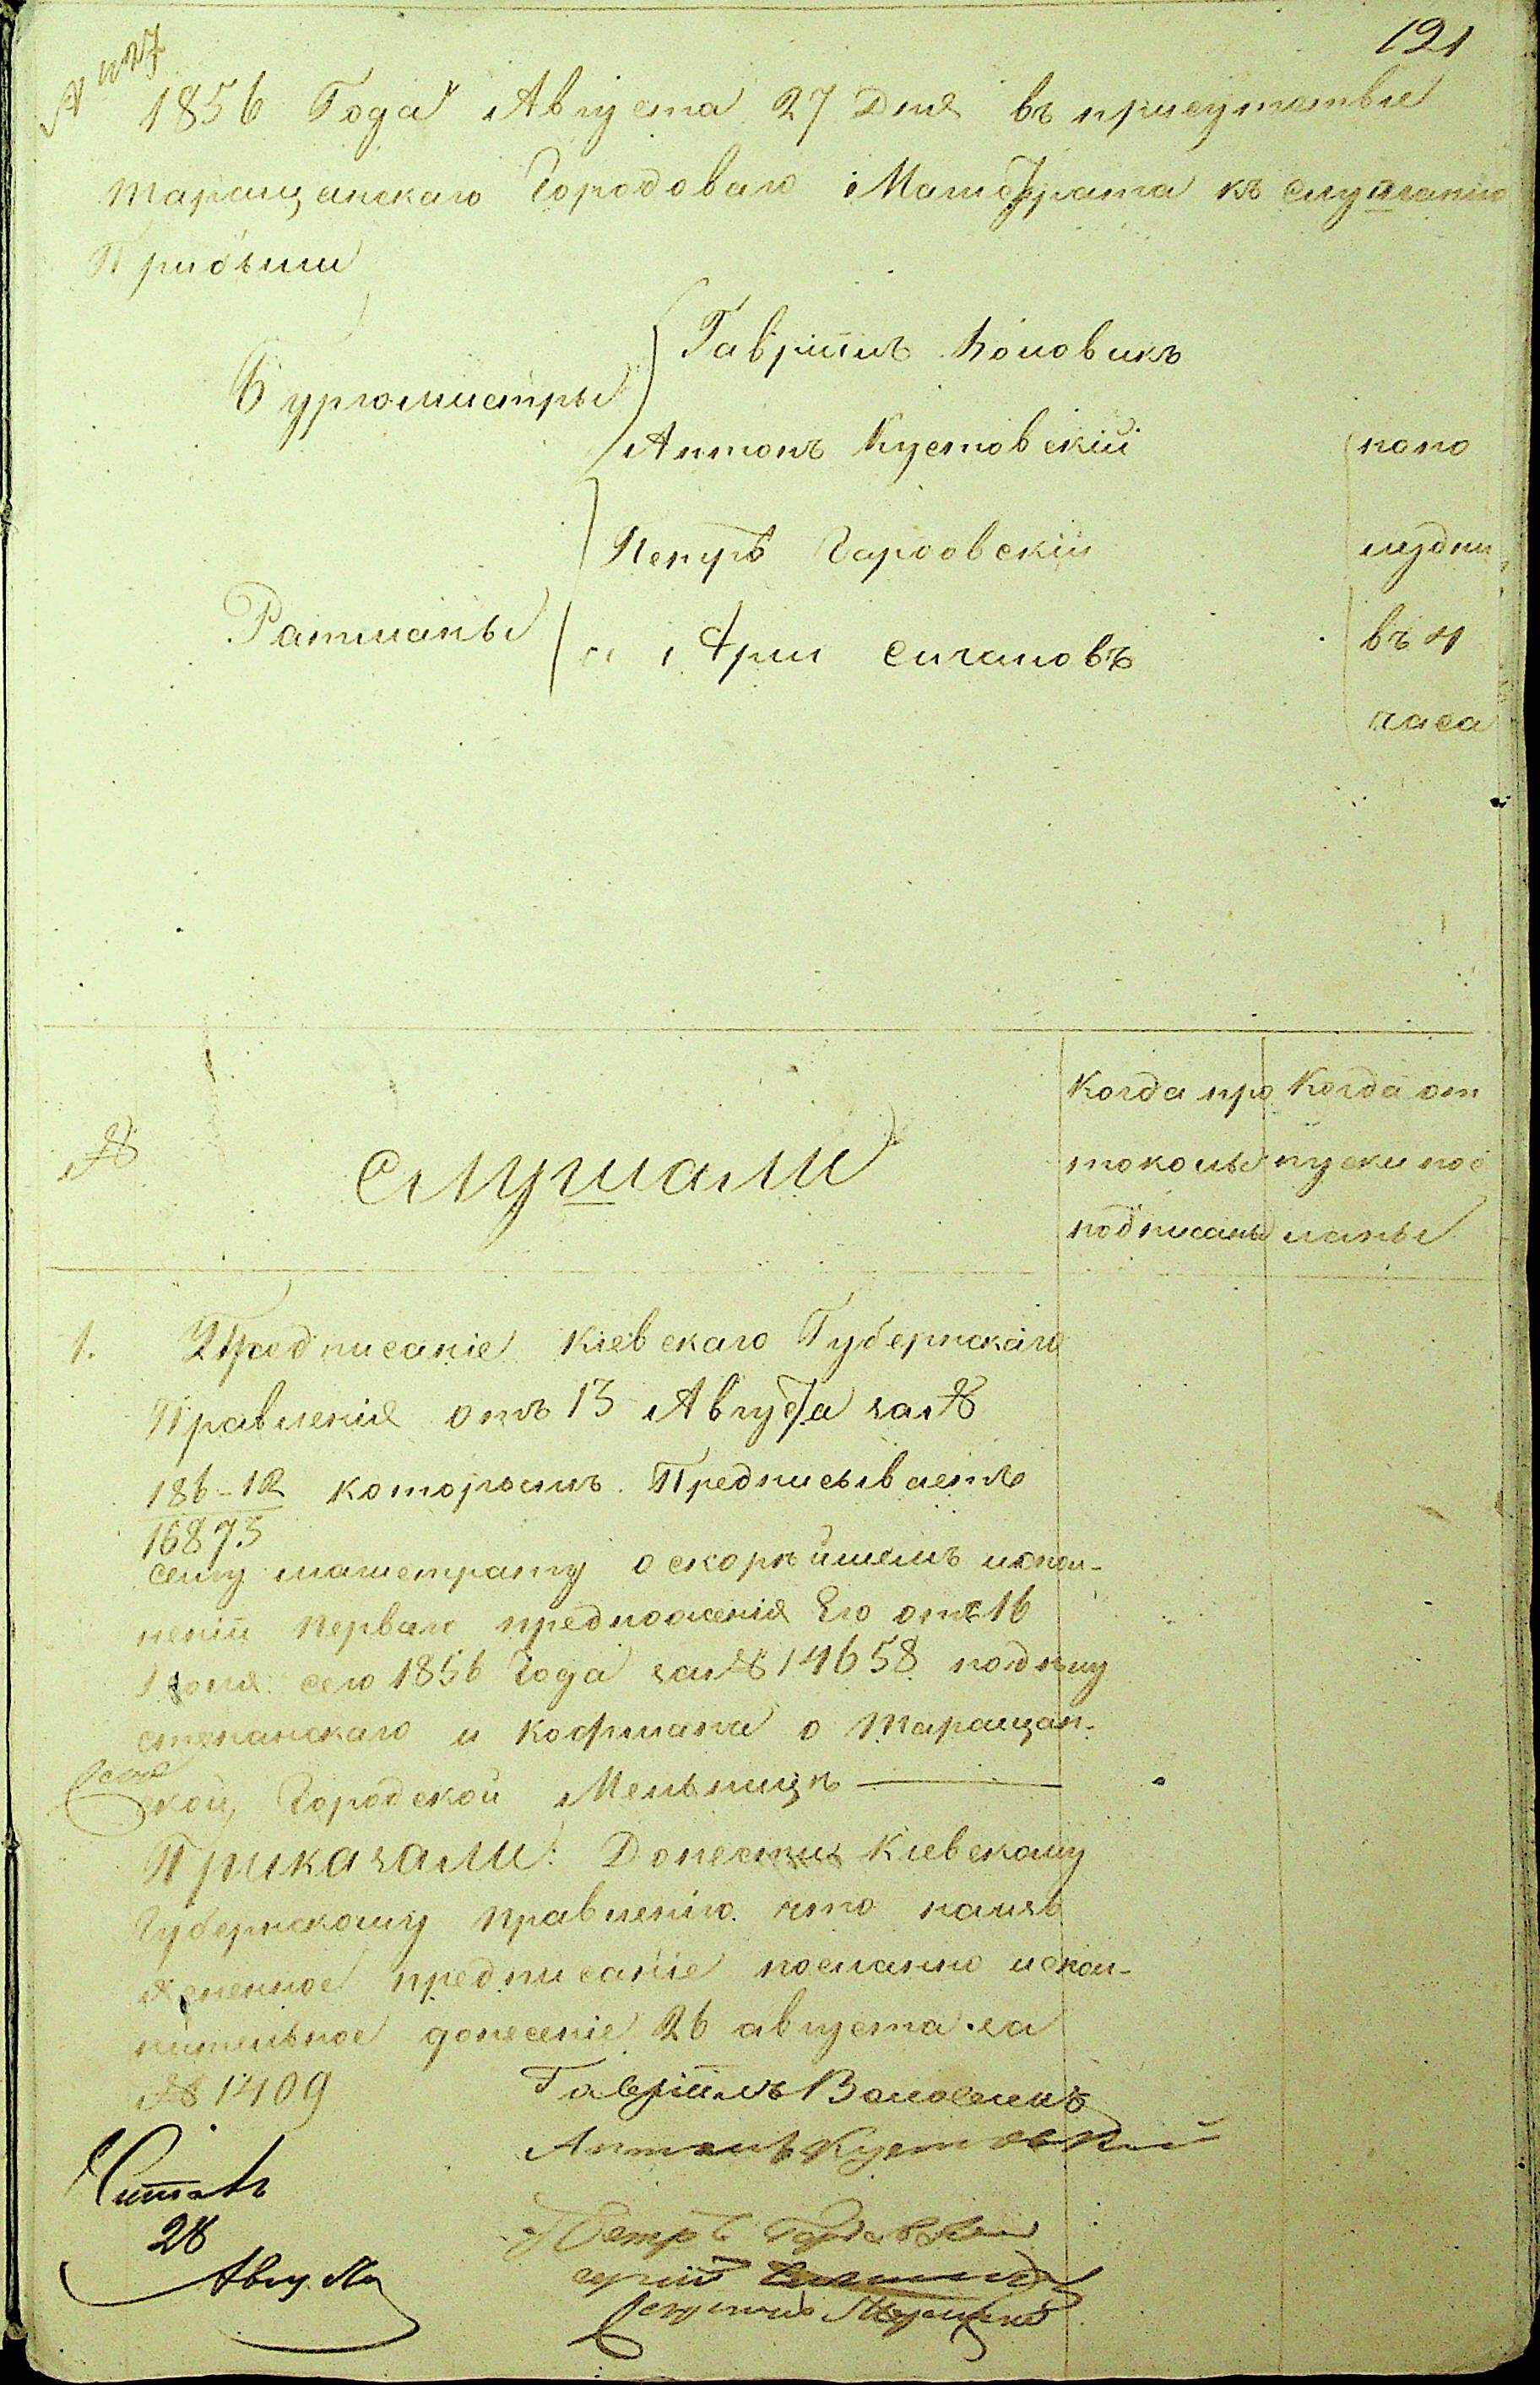 121
1856 Года Августа 27 Дня въ присутствіе
таращанскаго Городоваго Магистрата къ слушанію
Прибыли
Бургомистры
Гавріилъ Воловикъ
Антонъ Кустовскій
Ратманы
Петръ
и
попо
лудни
въ 4
часа
№
Слушали
Когда про
токолы
подписаны
Когда от
пуски пос
ланы
1. Предписаніе Кіевскаго Губернскаго
Правленія отъ 13 Августа за №
186-12
16873
которымъ Предписываетъ
сему магистрату о скорѣйшемъ испол-
неніи перваго предложенія Его отъ 16
Іюня сего 1856 Года за № 14658 по дѣлу
степанскаго и Кофмана о Таращан-
ской Городской Мельницѣ
Приказали: Донести Кіевскому
Губернскому Правленію что на изъ
ясненное предписаніе посланно испол-
нительное донесеніе 26 августа за
№ 1409
Гавріилъ Воловикъ
Антонъ Кустовскій
Петръ
Читалъ
28
Августа